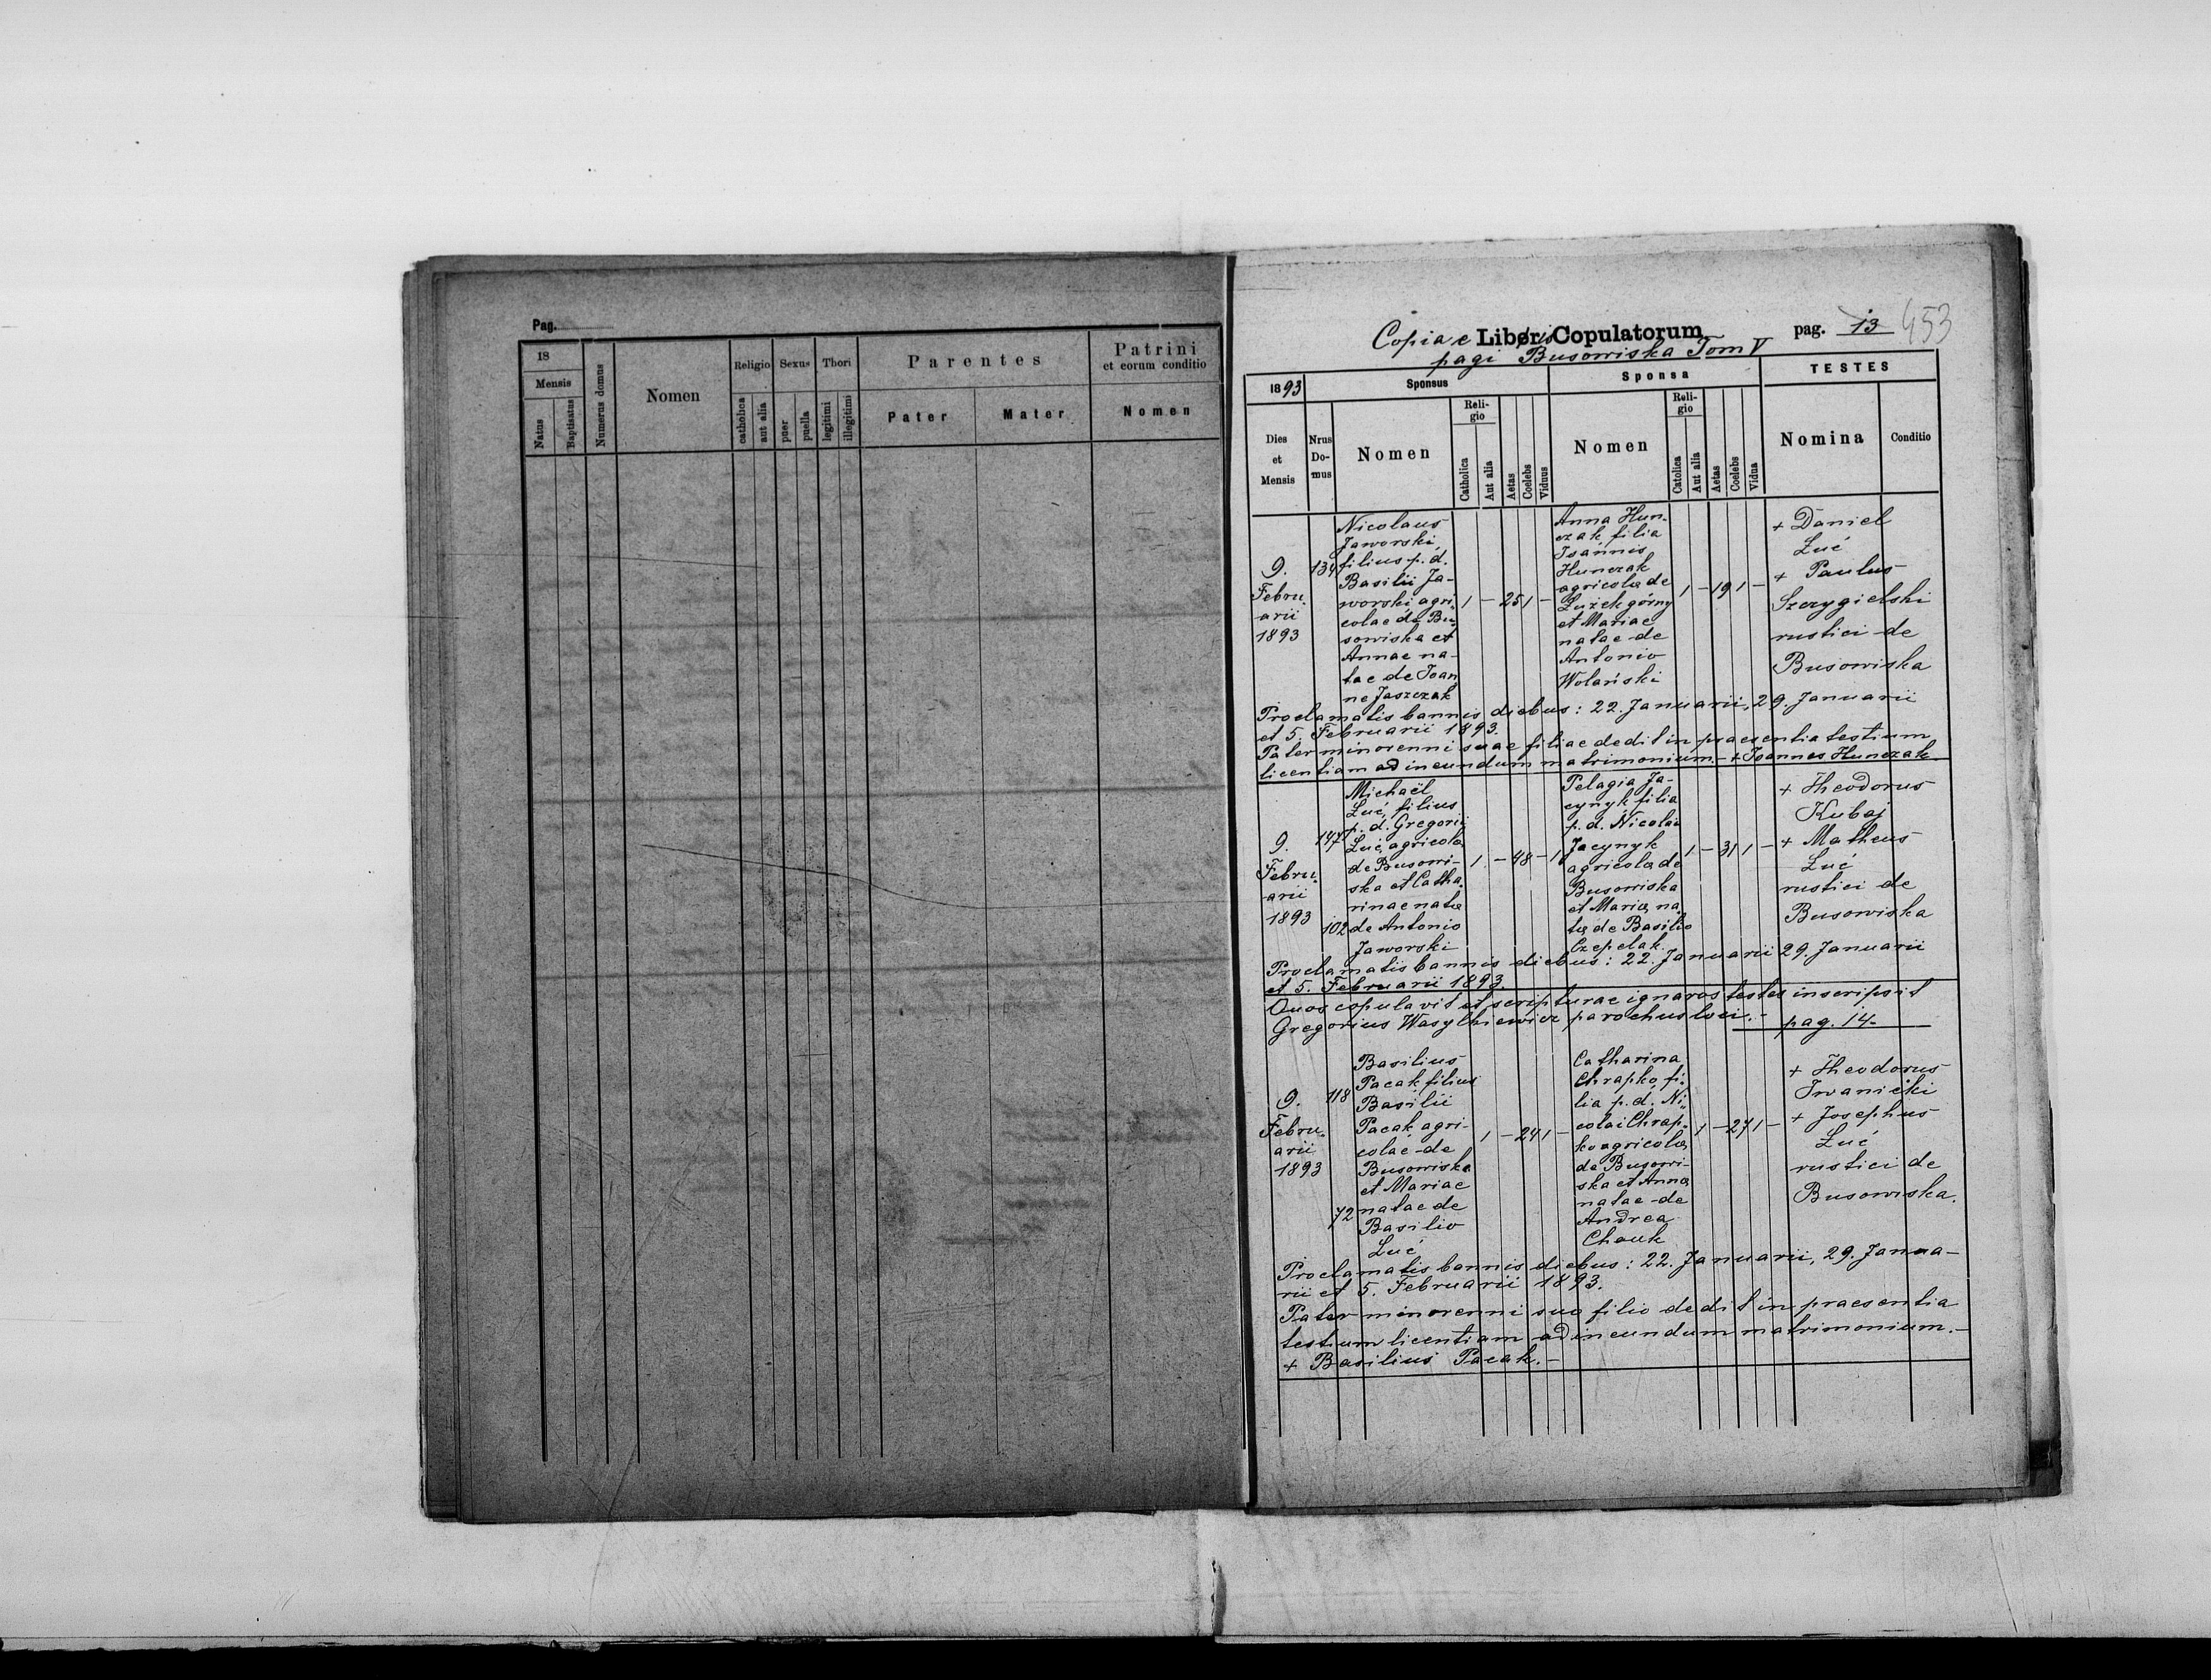 Pag.
18
Mensis
Natus
Baptisatus
Numerus domus
Nomen
Religio
catholica
aut alia
Sexus
puer
puella
Thori
legitimi
illegitimi
Parentes
Pater
Mater
Patrini
et eorum conditio
Nomen
Copiae Libri Copulatorum pag. 13 453
pagi Busowiska Tom V
1893
Sponsus
Sponsa
TESTES
Dies
et
Mensis
Nrus
Do-
mus
Nomen
Reli-
gio
Catholica
Aut alia
Aetas
Coelebs
Viduus
Nomen
Reli-
gio
Catolica
Aut alia
Aetas
Coelebs
Vidua
Nomina
Conditio
9.
Febru-
arii
1893
134
Nicolaus
Jaworski,
filius p. d.
Basilii Ja-
worski agri-
colae de Bu-
sowiska et
Annae na-
tae de Joan
ne Jaszczak
1 – 25 1 –
Anna Hun-
czak filia
Joannis
Hunczak
agricolae de
Łużek górny
et Mariae
natae de
Antonio
Wolański
1 – 19 1 –
+ Daniel
Łuć
+ Paulus
Szczygielski
rustici de
Busowiska
Proclamatis bannis diebus: 22. Januarii, 29. Januarii
et 5. Februarii 1893.
Pater minorenni suae filiae dedit in praesentia testium
licentiam ad ineundum matrimonium. – + Joannes Hunczak
9.
Febru-
arii
1893
147
102
Michaël
Łuć, filius
p. d. Gregorii
Łuć, agricolae
de Busowi-
ska et Catha-
rinae natae
de Antonio
Jaworski
1 – 48 – 1
Pelagia Ja-
cynyk filia
p. d. Nicolai
Jacynyk
agricolae de
Busowiska
et Mariae na-
tae de Basilio
Czepelak.
1 – 31 1 –
+ Theodorus
Kubaj
+ Matheus
Łuć
rustici de
Busowiska
Proclamatis bannis diebus: 22. Januarii 29. Januarii
et 5. Februarii 1893.
Quos copulavit et scripturae ignaros testes inscripsit
Gregorius Wasylkiewicz parochus loci. –
pag. 14.
9.
Febru-
arii
1893
118
72
Basilius
Pacak filius
Basilii
Pacak agri-
colae de
Busowiska
et Mariae
natae de
Basilio
Łuć
1 – 24 1 –
Catharina
Chrapko, fi-
lia p. d. Ni-
colai Chrap-
ko agricolae
de Busowi-
ska et Annae
natae de
Andrea
Chouk
1 – 27 1 –
+ Theodorus
Iwanicki
+ Josephus
Łuć
rustici de
Busowiska.
Proclamatis bannis diebus: 22. Januarii, 29. Janua-
rii et 5. Februarii 1893.
Pater minorenni suo filio dedit in praesentia
testium licentiam ad ineundum matrimonium. –
+ Basilius Pacak. –